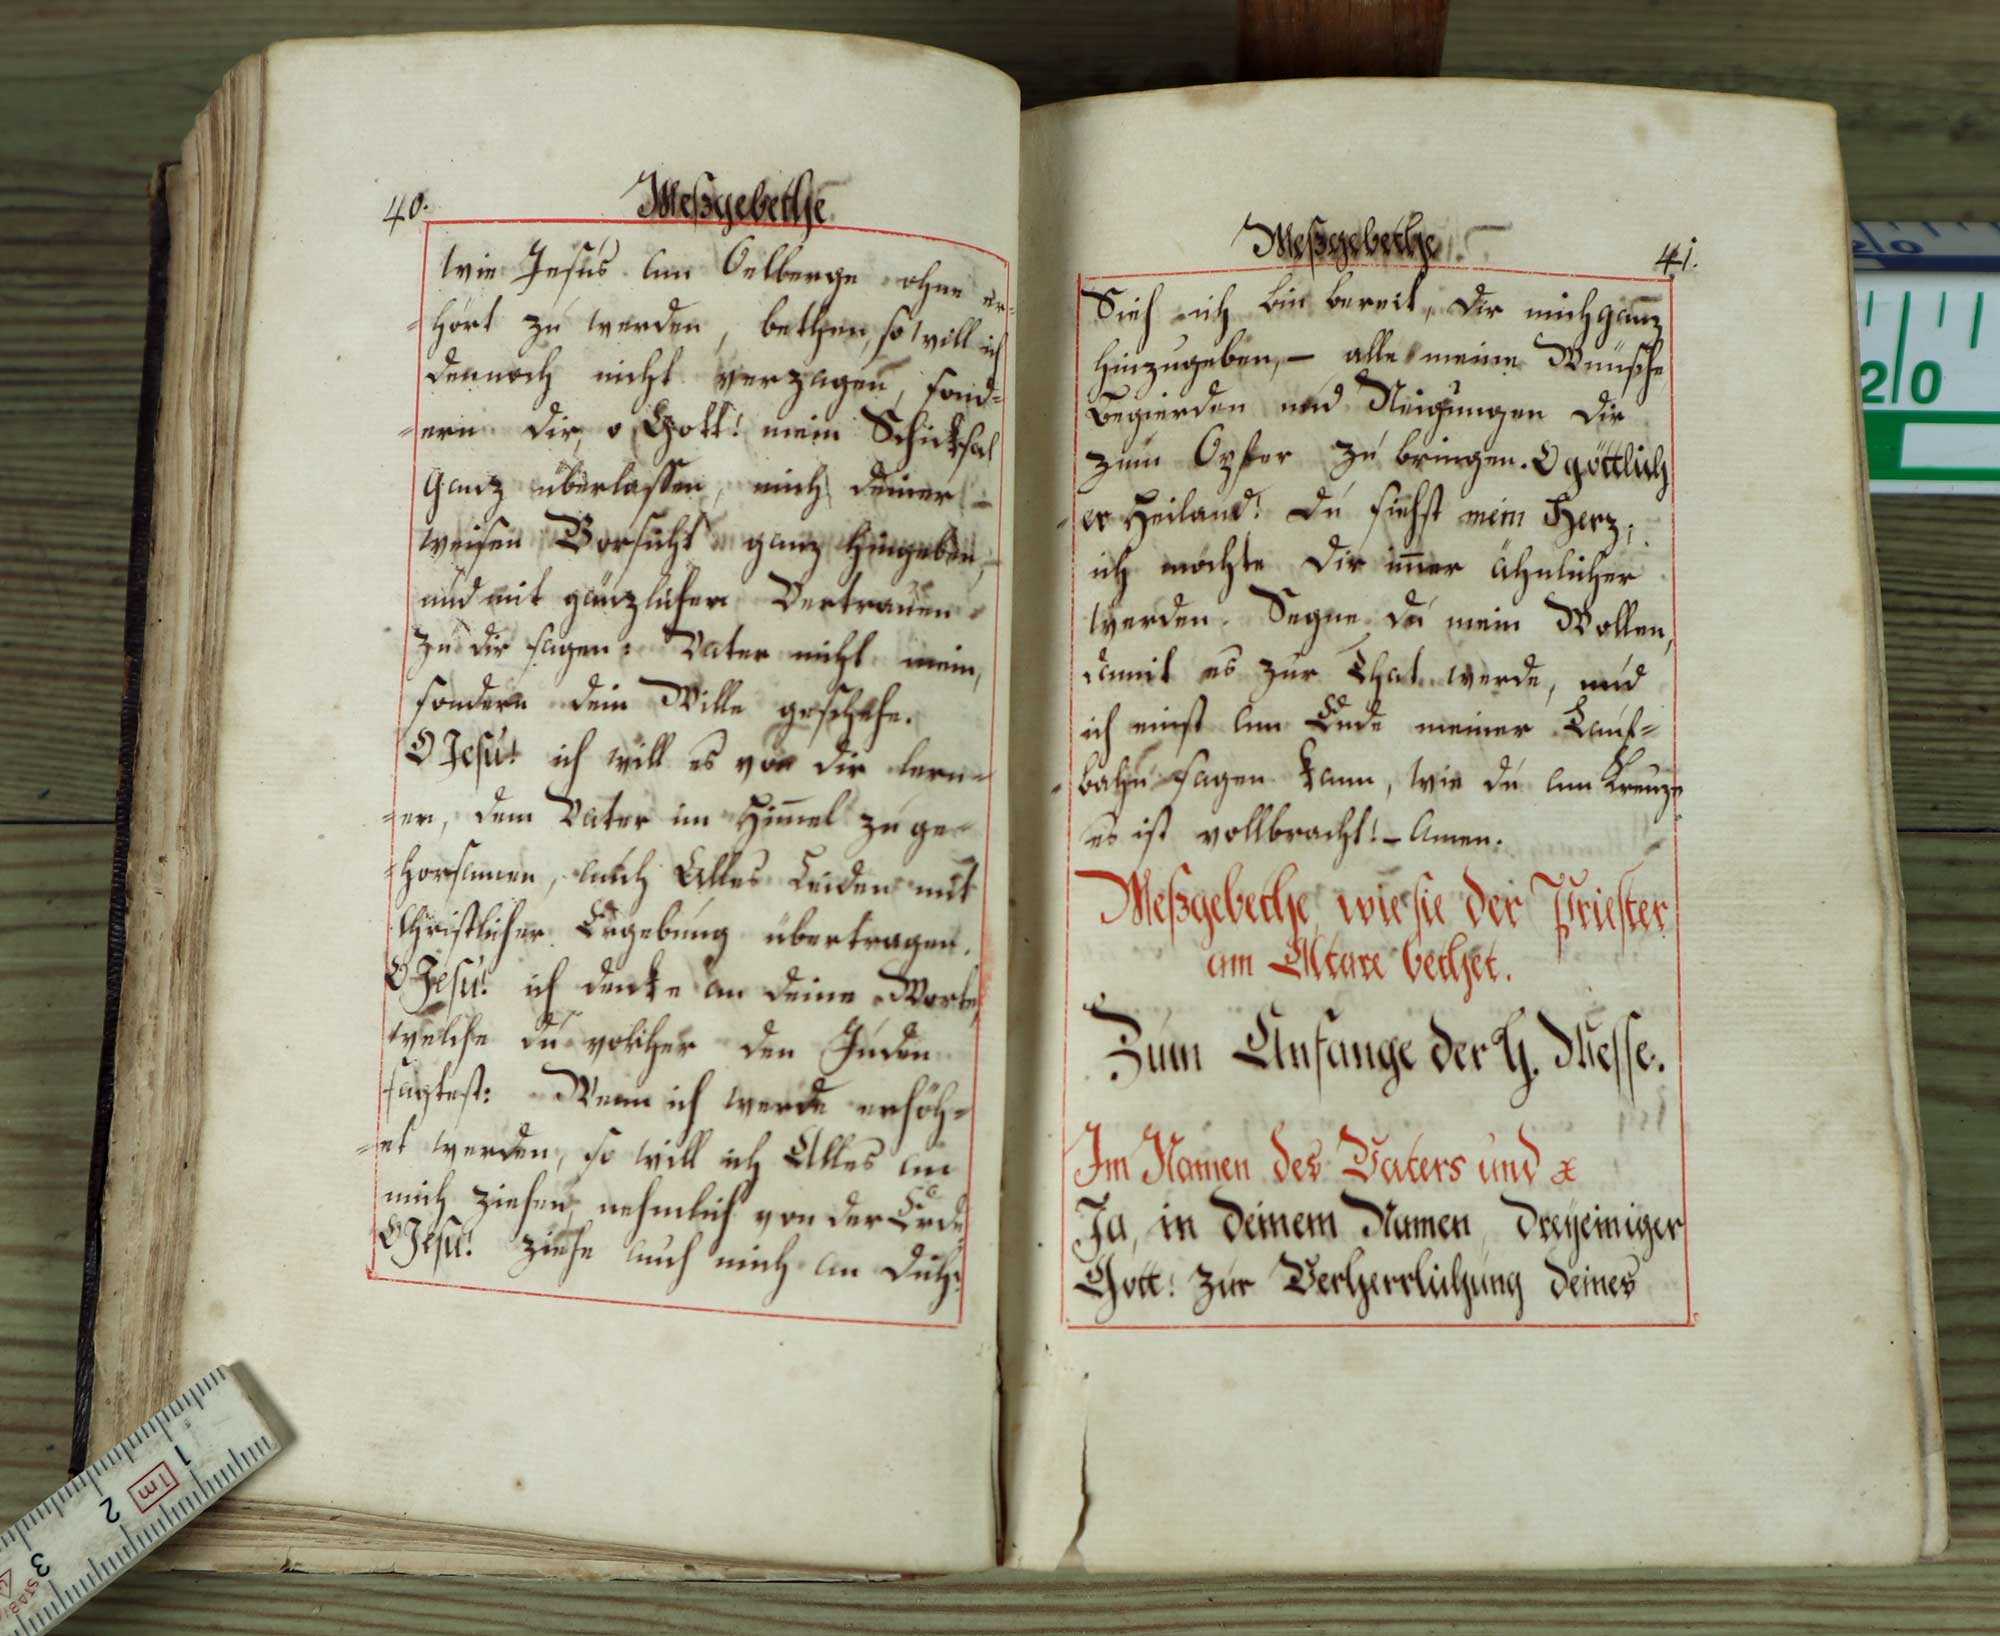 40.
Meßgebethe
wie Jesus am Oelberge ohne er-
-hört zu werden, bethen, so will ich
dennoch nicht verzagen, sond-
-ern dir, o Gott! mein Schicksal
Ganz überlassen, mich deiner -
weisen Vorsicht ganz hingeben,
und mit gänzlicher Vertrauen
zu dir sagen: Vater nicht mein,
sondern dein Wille geschehe.
O Jesu! ich will es von dir lern-
-en, dem Vater im Him̄el zu ge-
-horsamen, auch Alles Leiden mit
Christlicher Ergebung übertragen.
O Jesu! ich denke an deine Worte,
welche du vorher den Juden
sagtest: Wenn ich werde erhöh-
-et werden, so will ich Alles an
mich ziehen, nehmlich von der Erde
O Jesu! ziehe auch mich an dich:
Meßgebethe
41.
Sieh ich bin bereit, dir mich ganz
hinzugeben, - alle meine Wünsche
Begierden und Neigungen dir
zum Opfer zu bringen. O göttlich
-er Heiland! Du siehst mein Herz;
ich möchte dir im̄er ähnlicher
werden. Segne du mein Wollen,
damit es zur That werde, und
ich einst am Ende meiner Lauf-
-bahn sagen kann, wie du am Kreuze
es ist vollbracht! - Amen.
Meßgebethe, wie sie der Priester
am Altare bethet.
Zum Anfange der H. Messe.
Im Namen des Vaters und x
Ja, in deinem Namen, dreyeiniger
Gott! zur Verherrlichung deines
20
1
2
1m
3